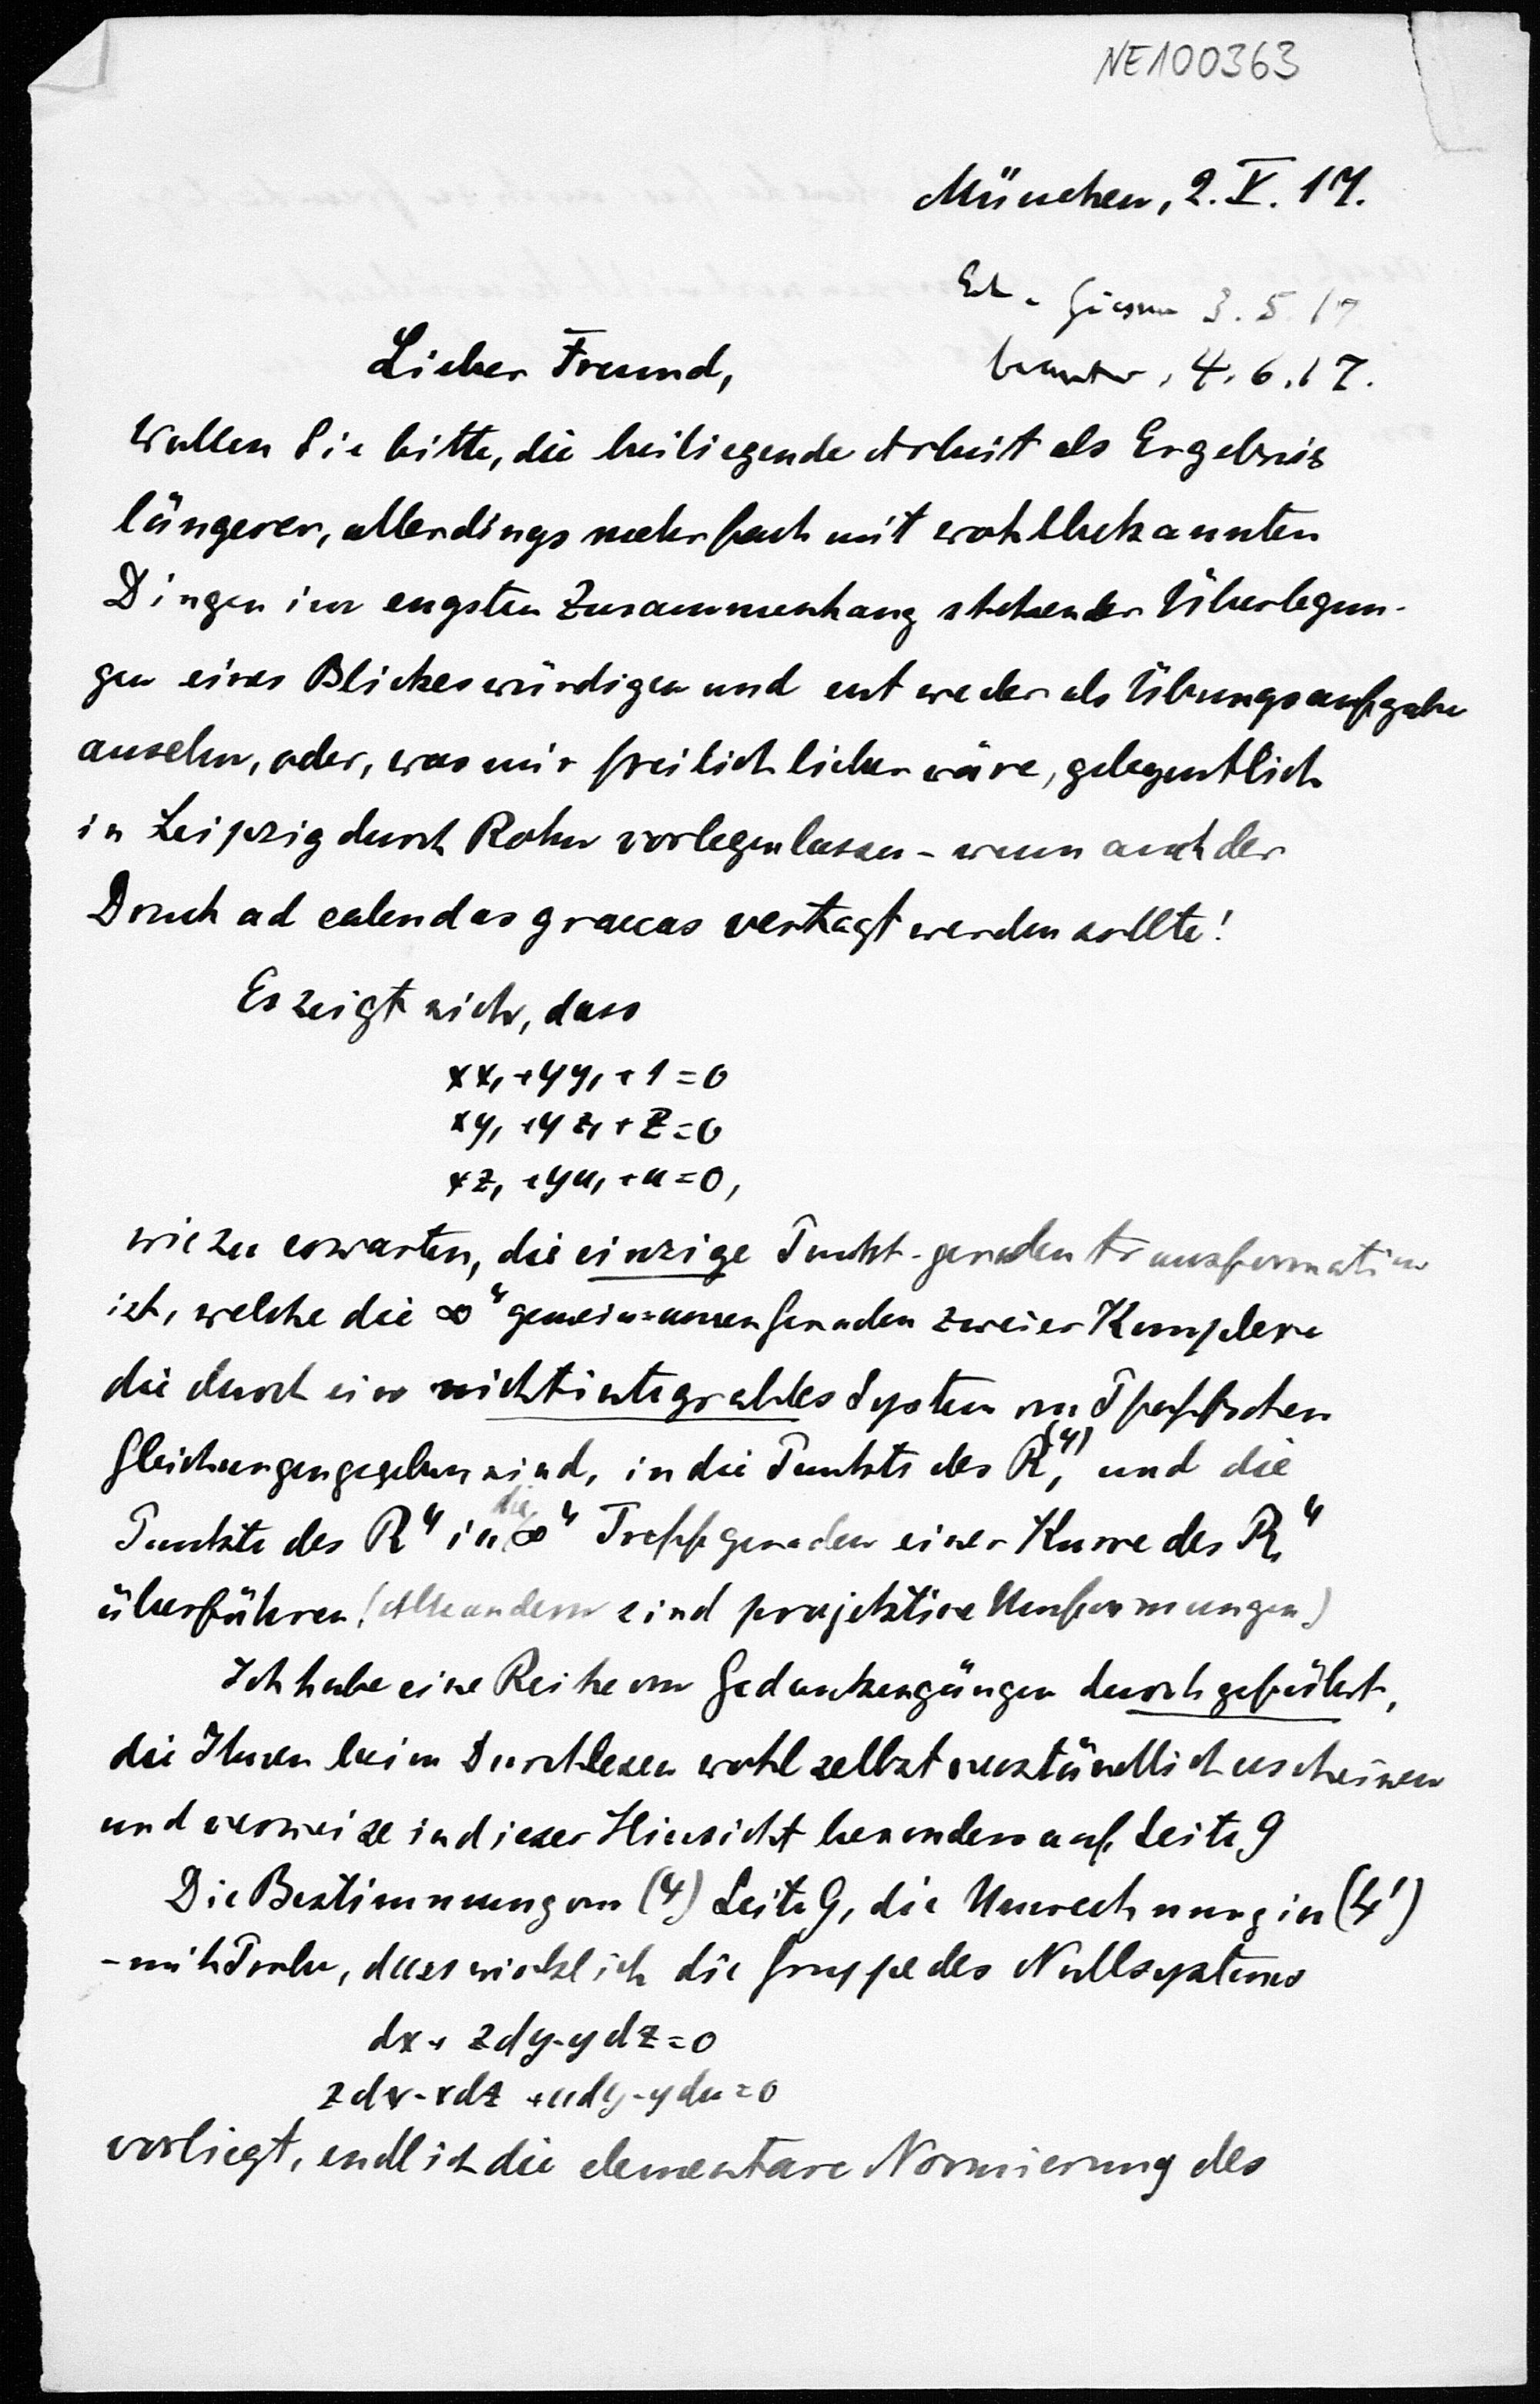 NE100363
München, 2. V. 17.
Erh. Giessen 3. 5. 17
Lieber Freund,
beantw. 4. 6. 17.
Wollen Sie bitte, die beiliegende Arbeit als Ergebnis
längerer, allerdings mehrfach mit wohlbekannten
Dingen im engsten Zusammenhang stehender Überlegun-
gen eines Blickes würdigen und entweder als Übungsaufgabe
ansehn, oder, was mir freilich lieber wäre, gelegentlich
in Leipzig durch Rohn vorlegen lassen - wenn auch der
Druck ad calendas graecas vertagt werden sollte!
Es zeigt sich, dass
xx₁ + yy₁ + 1 = 0
xy₁ + yz₁ + z = 0
xz₁ + yu₁ + u = 0,
wie zu erwarten, die einzige Punkt-geraden transformation
ist, welche die ∞⁴ gemeinsamen Geraden zweier Komplexe
die durch ein nichtintegrables System von Pfaffschen
Gleichungen gegeben sind, in die Punkte des R₁⁽⁴⁾, und die
Punkte des R⁴ in die ∞⁴ Treffgeraden einer Kurve des R₁⁴
überführen (Alle andern sind projektive Umformungen)
Ich habe eine Reihe von Gedankengängen durchgeführt,
die Ihnen beim Durchlesen wohl selbstverständlich erscheinen
und verweise in dieser Hinsicht besonders auf Seite 9
Die Bestimmung von (4) Seite 9, die Umrechnung in (4')
- mit Probe, dass wirklich die Gruppe des Nullsystems
dx + zdy - ydz = 0
zdx - xdz + udy - ydu = 0
vorliegt, endlich die elementare Normierung des